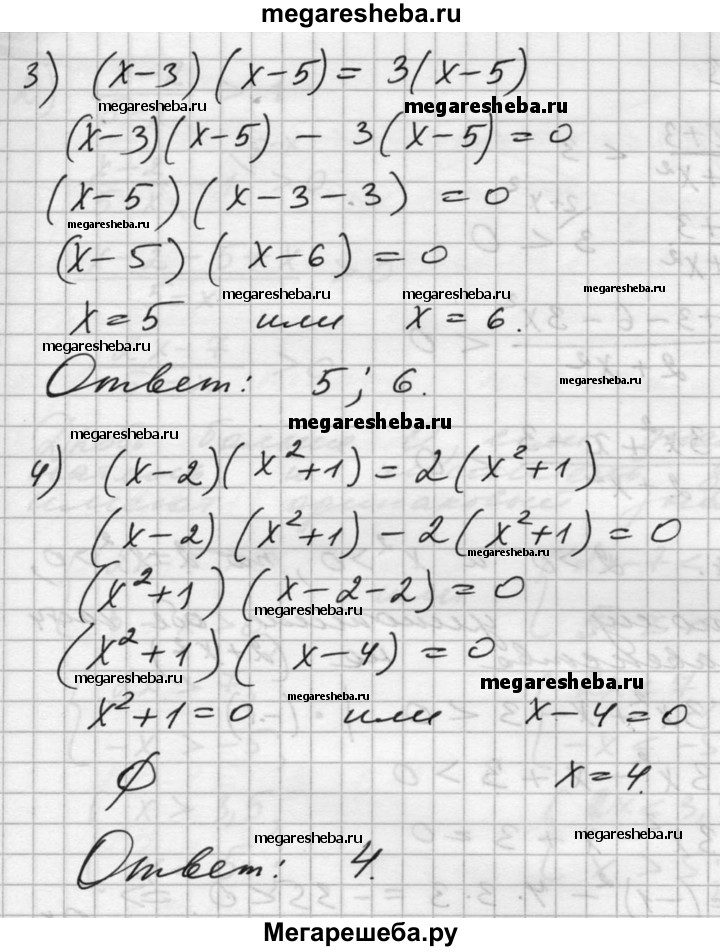 megaresheba.ru
3) (x-3)(x-5) = 3(x-5)
megaresheba.ru megaresheba.ru
(x-3)(x-5) - 3(x-5) = 0
(x-5)(x-3-3) = 0
megaresheba.ru
(x-5)(x-6) = 0
megaresheba.ru megaresheba.ru megaresheba.ru
x = 5 или x = 6.
megaresheba.ru
Ответ: 5; 6.
megaresheba.ru
megaresheba.ru
megaresheba.ru
4) (x-2)(x²+1) = 2(x²+1)
(x-2)(x²+1) - 2(x²+1) = 0
megaresheba.ru
(x²+1)(x-2-2) = 0
megaresheba.ru
(x²+1)(x-4) = 0
megaresheba.ru megaresheba.ru megaresheba.ru
x²+1 = 0 или x-4 = 0
∅ x = 4.
megaresheba.ru megaresheba.ru
Ответ: 4.
Мегарешеба.ру